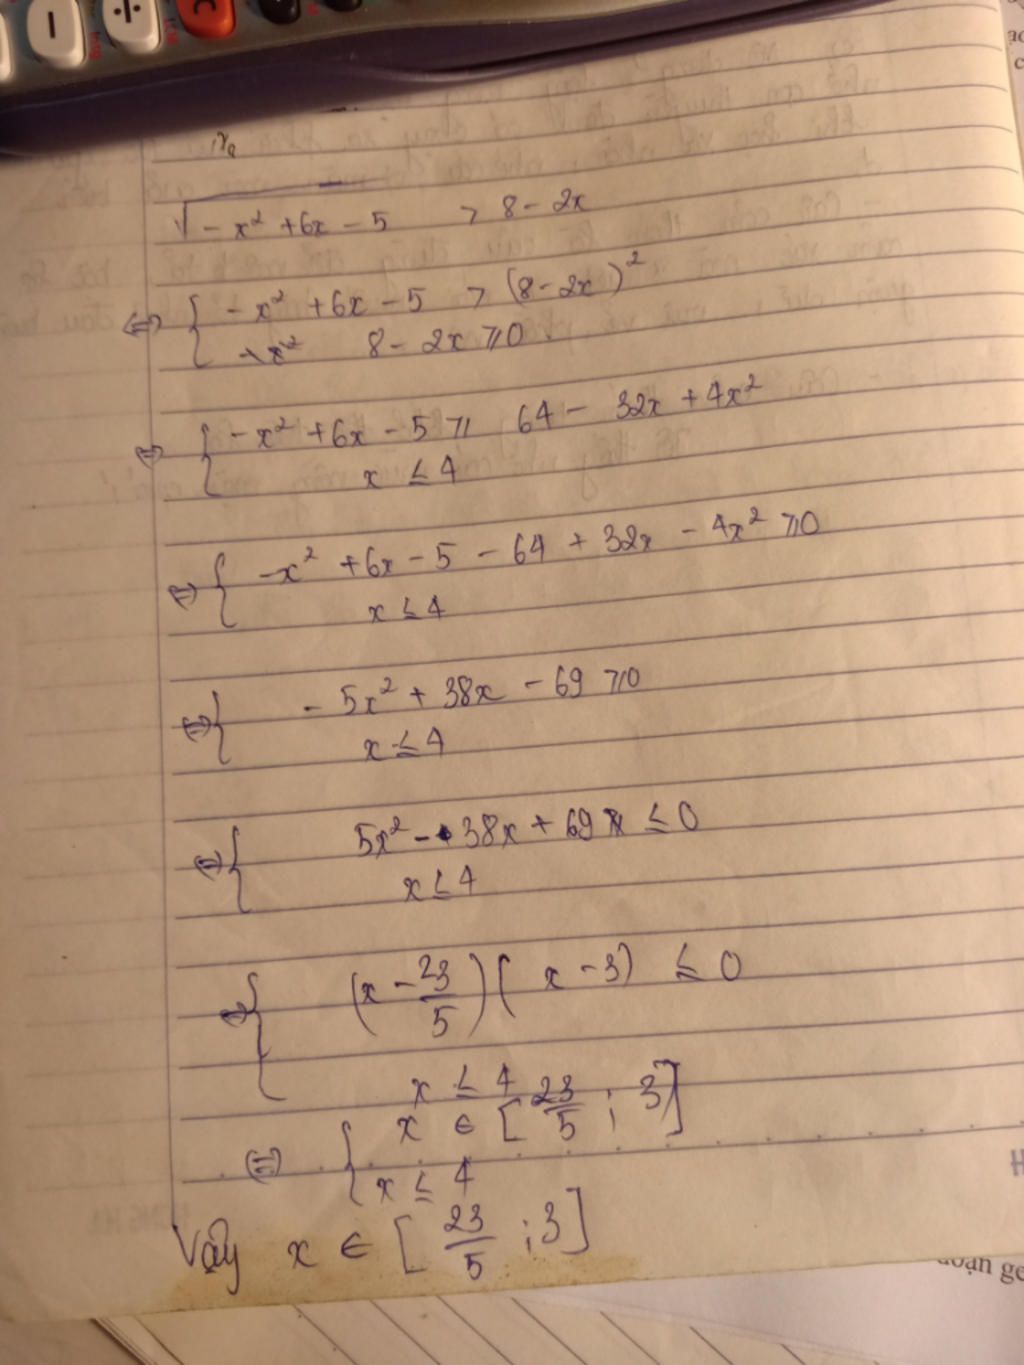 √(-x² + 6x - 5) > 8 - 2x
⇔ { -x² + 6x - 5 > (8 - 2x)²
8 - 2x ⩾ 0
⇔ { -x² + 6x - 5 ⩾ 64 - 32x + 4x²
x ≤ 4
⇔ { -x² + 6x - 5 - 64 + 32x - 4x² ⩾ 0
x ≤ 4
⇔ { - 5x² + 38x - 69 ⩾ 0
x ≤ 4
⇔ { 5x² - 38x + 69 ≤ 0
x ≤ 4
⇔ { (x - 23/5)(x - 3) ≤ 0
x ≤ 4
⇔ { x ∈ [23/5 ; 3]
x ≤ 4
Vậy x ∈ [23/5 ; 3]